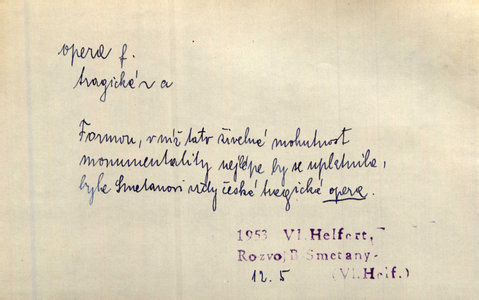 opera f.
tragická ~ a
Formou, v níž tato živelná mohutnost
monumentality nejlépe by se uplatnila,
byla Smetanovi vždy česká tragická opera.
1953 Vl. Helfert,
Rozvoj B. Smetany-
12.5 (Vl. Helf.)